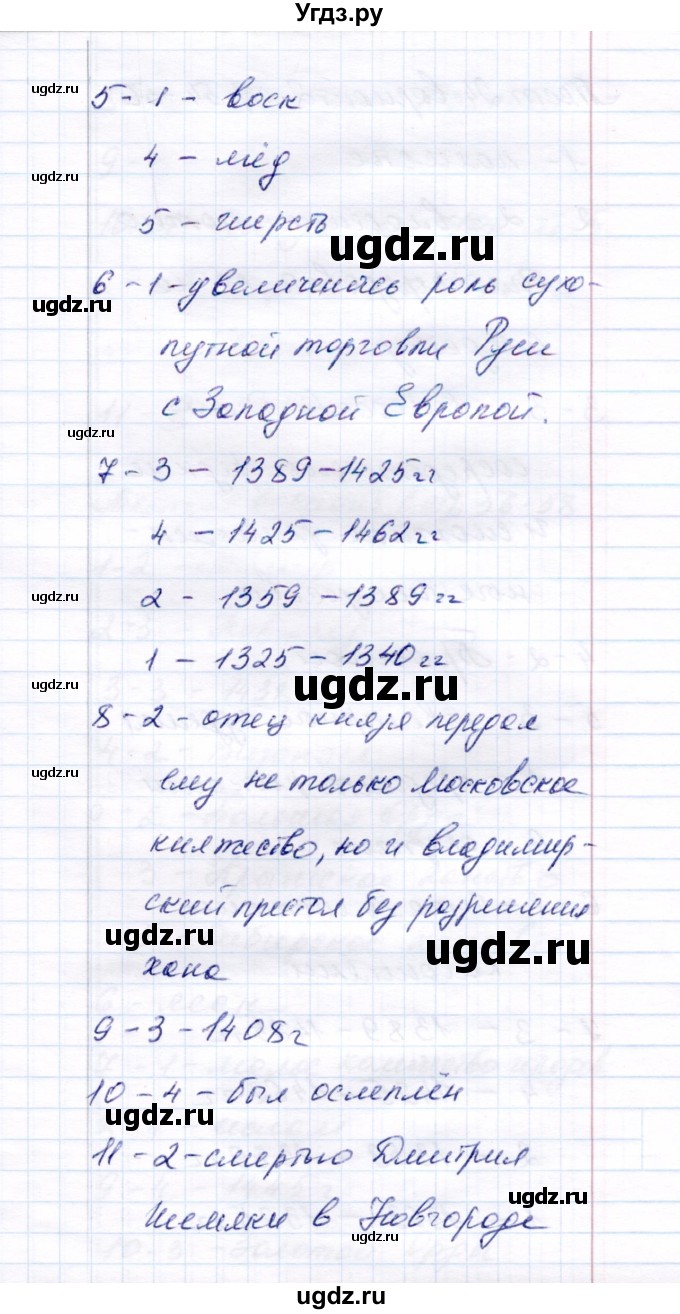 Угдз.ру
ugdz.ru
5 - 1 - воск
4 - мёд
ugdz.ru
5 - шерсть
ugdz.ru
ugdz.ru
6 - 1 - увеличилась роль сухо-
ugdz.ru
путной торговли Руси
с Западной Европой.
ugdz.ru
7 - 3 - 1389 - 1425 гг
4 - 1425 - 1462 гг
ugdz.ru
2 - 1359 - 1389 гг
1 - 1325 - 1340 гг
ugdz.ru
ugdz.ru
8 - 2 - отец князя передал
ugdz.ru
ему не только Московское
княжество, но и владимир-
ский престол без разрешения
ugdz.ru
ugdz.ru
хана
9 - 3 - 1408 г
10 - 4 - был ослеплён
ugdz.ru
11 - 2 - смертью Дмитрия
Шемяки в Новгороде
ugdz.ru
ugdz.ru
ugdz.ru